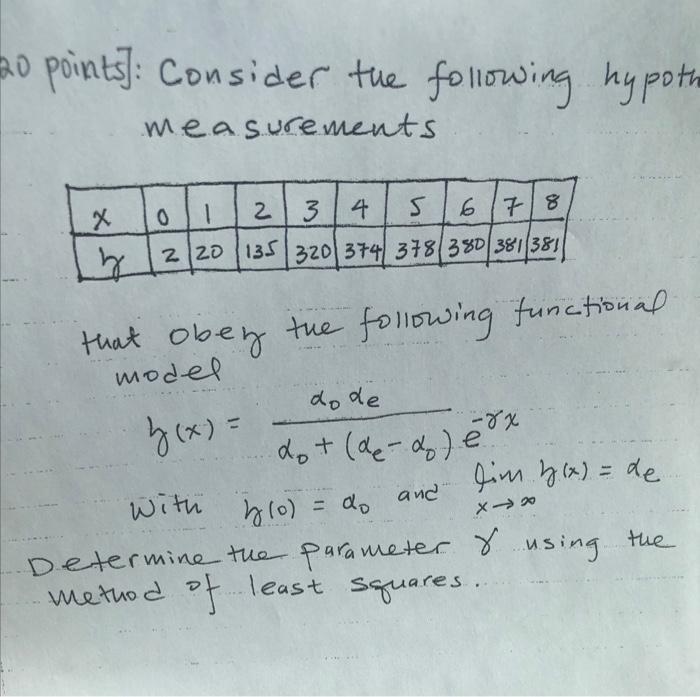 20 points]: Consider the following hypoth
measurements
x 0 1 2 3 4 5 6 7 8
y 2 20 135 320 374 378 380 381 381
that obey the following functional
model
y(x) = α₀ αe / α₀ + (αe - α₀) e^-γx
with y(0) = α₀ and lim y(x) = αe
x→∞
Determine the parameter γ using the
method of least squares.